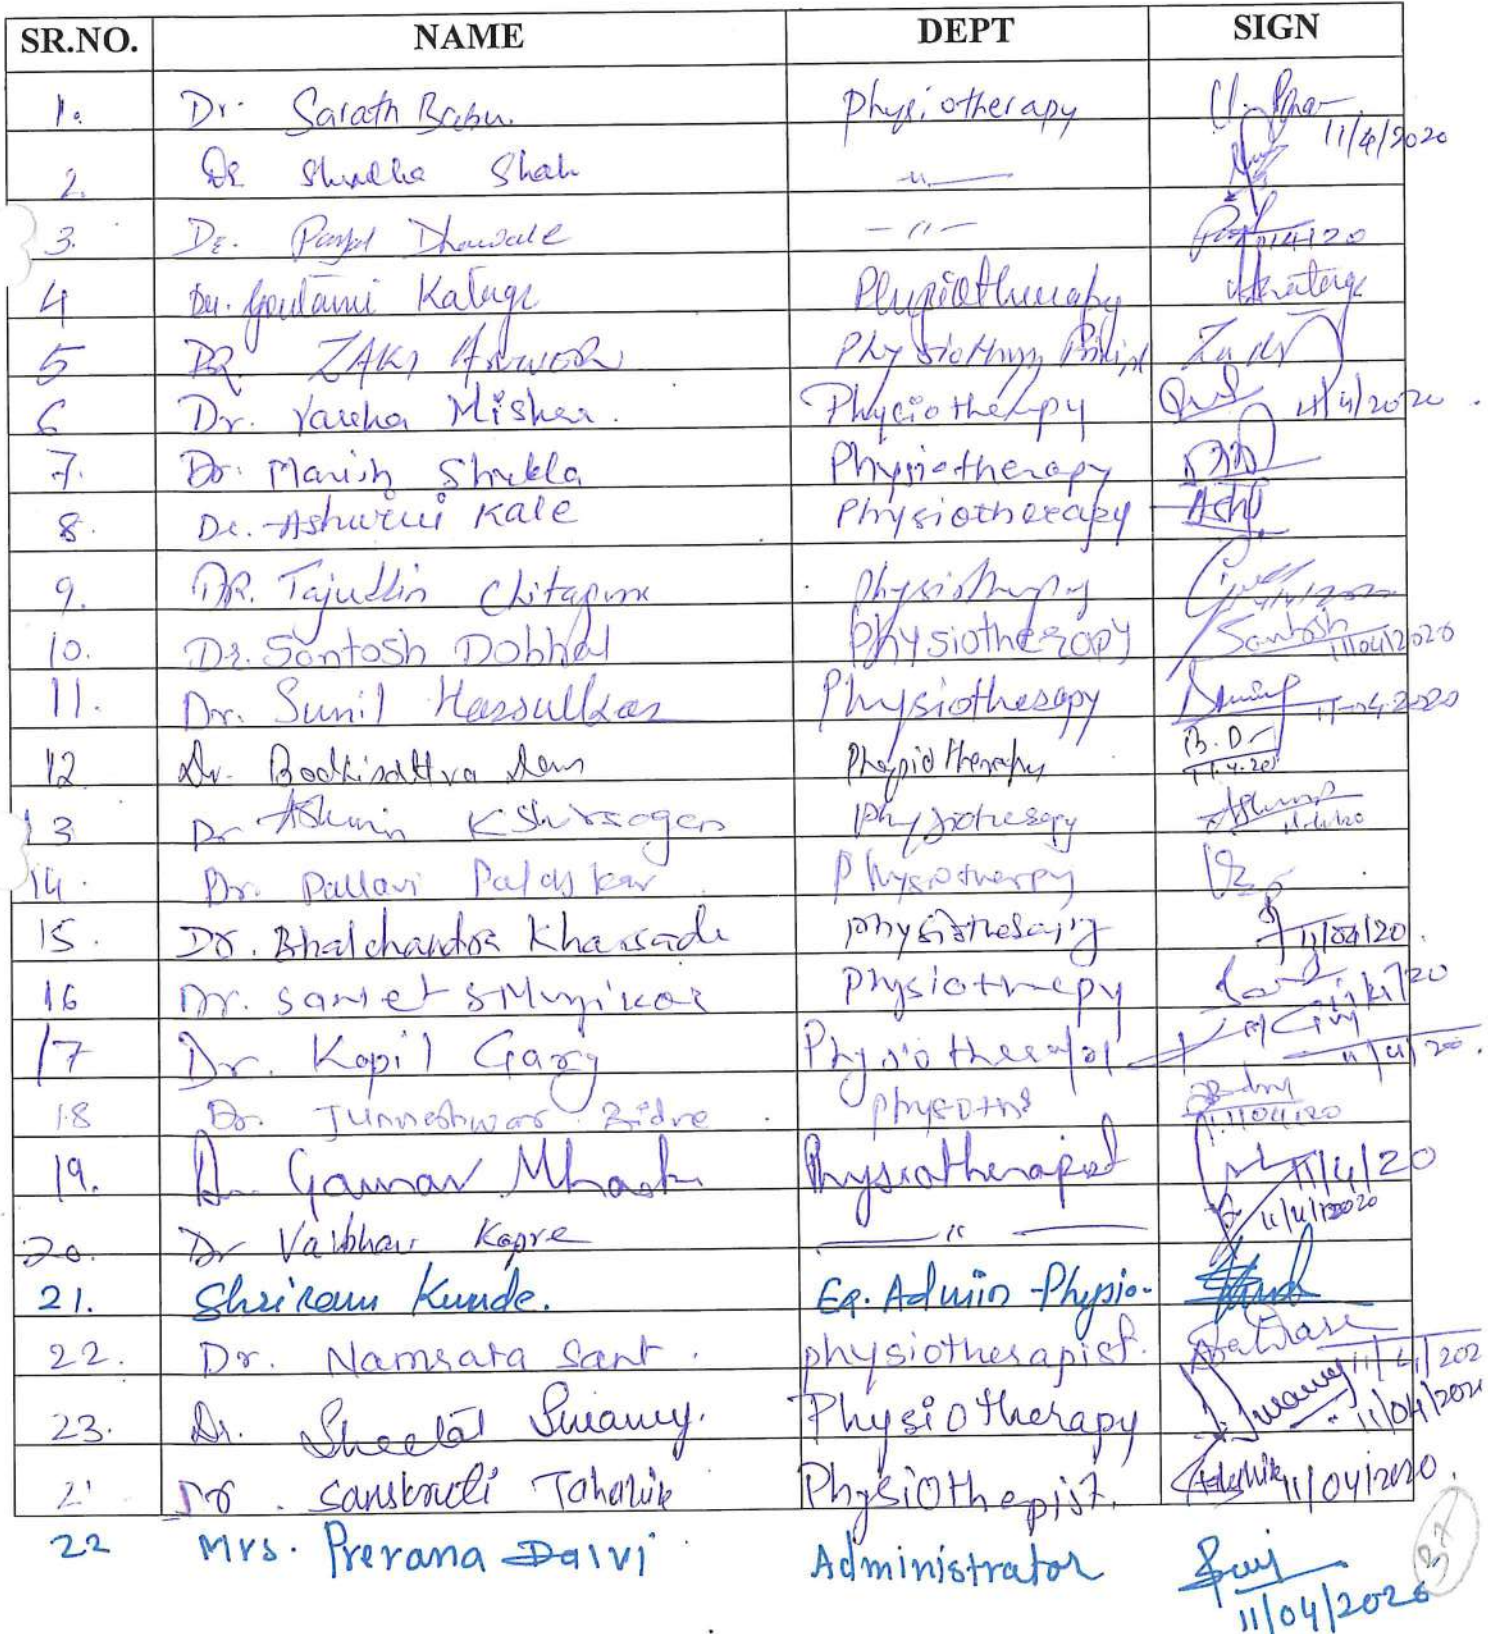 SR.NO. NAME DEPT SIGN
1. Dr. Sarath Babu. Physiotherapy 11/4/2020
2. Dr Shah —"—
3. Dr. Payal Dhawale —"— 11/4/20
4 Dr. Goutami Katage Physiotherapy Katage
5 DR ZAKI ANWER Physiotherapy Zaki
6 Dr. Varsha Mishra. Physiotherapy 11/4/2020
7. Dr. Manish Shukla Physiotherapy
8. Dr. Ashwini Kale Physiotherapy Ash
9. DR. Tajuddin Chitapure Physiotherapy 11/4/2020
10. Dr. Santosh Dobhal Physiotherapy Santosh 11/04/2020
11. Dr. Sunil Harsulkar Physiotherapy 11-04-2020
12 Dr. Bodhisattva Physiotherapy B.D 11.4.20
13 Dr Ashwin Kshirsagar Physiotherapy 11/4/20
14. Dr. Pallavi Palaskar Physiotherpy
15. Dr. Bhalchandra Kharsade Physiotherapy 11/04/20
16 Dr. Samet Physiothepy 11/4/20
17 Dr. Kapil Garg 11/4/20
18 Dr. Bidve 11/04/20
19. Dr. Gaurav Mhask Physiotherapist 11/4/20
20. Dr Vaibhav Kapre —"— 11/4/2020
21. Shriram Kunde. Ex. Admin -Physio-
22. Dr. Namrata Sant. physiotherapist. 11/4/202
23. Dr. Sheetal Swamy. Physiotherapy Swamy 11/04/202
2 Dr. Sanskruti Tahalik Physiothepist. 11/04/2020.
22 Mrs. Prerana Dalvi Administrator 11/04/2020
37